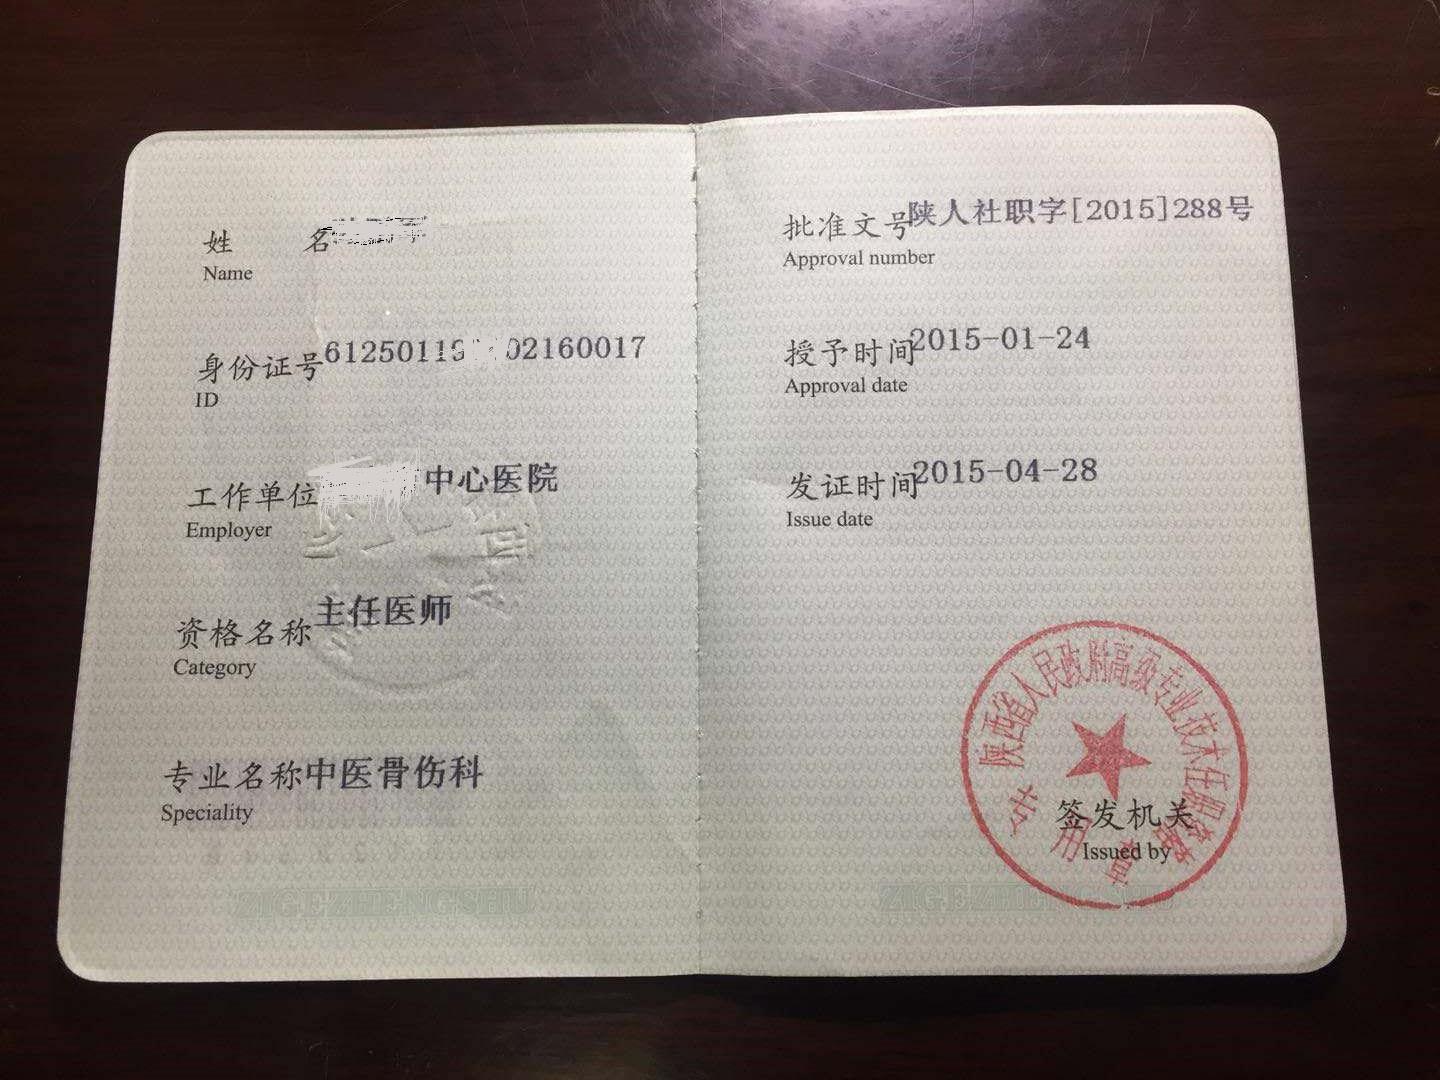 姓 名
Name
身份证号
ID
工作单位 中心医院
Employer
资格名称 主任医师
Category
专业名称 中医骨伤科
Speciality
ZIGEZHENGSHU
批准文号 陕人社职字[2015]288号
Approval number
授予时间 2015-01-24
Approval date
发证时间 2015-04-28
Issue date
陕西省人民政府高级专业技术任职资格
专用章
签发机关
Issued by
ZIGEZHENGSHU